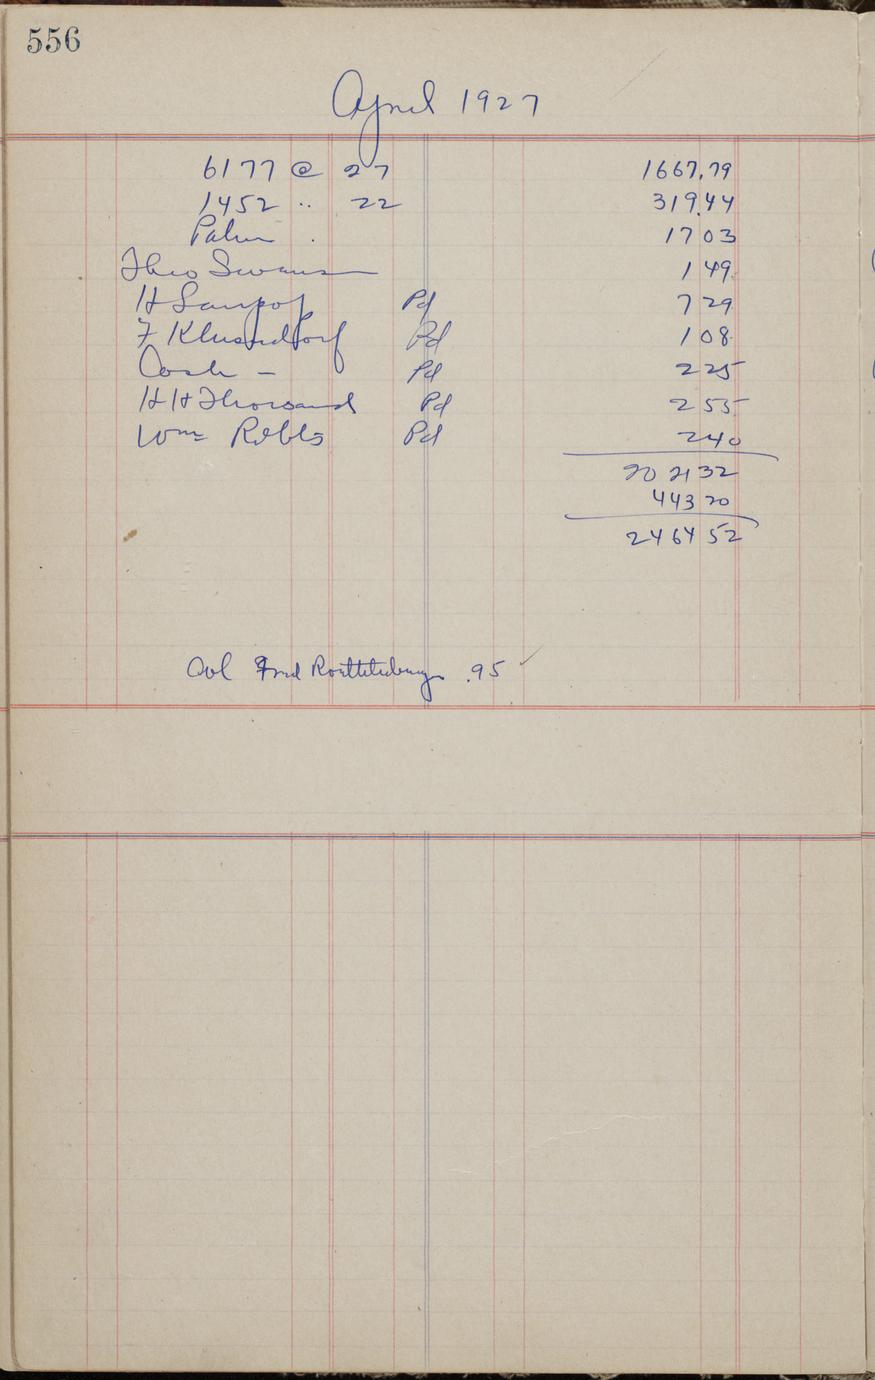 556
April 1927
6177 @ 27 1667.79
1452 .. 22 319.44
Palm . 17 03
Theo Swans 1 49
H Pd 7 29
F Klusendorf Pd 1 08
Cash - Pd 2 25
H H Thorsand Pd 2 55
Wm Robbs Pd 2 40
20 21 32
443 20
2464 52
Col Fred .95